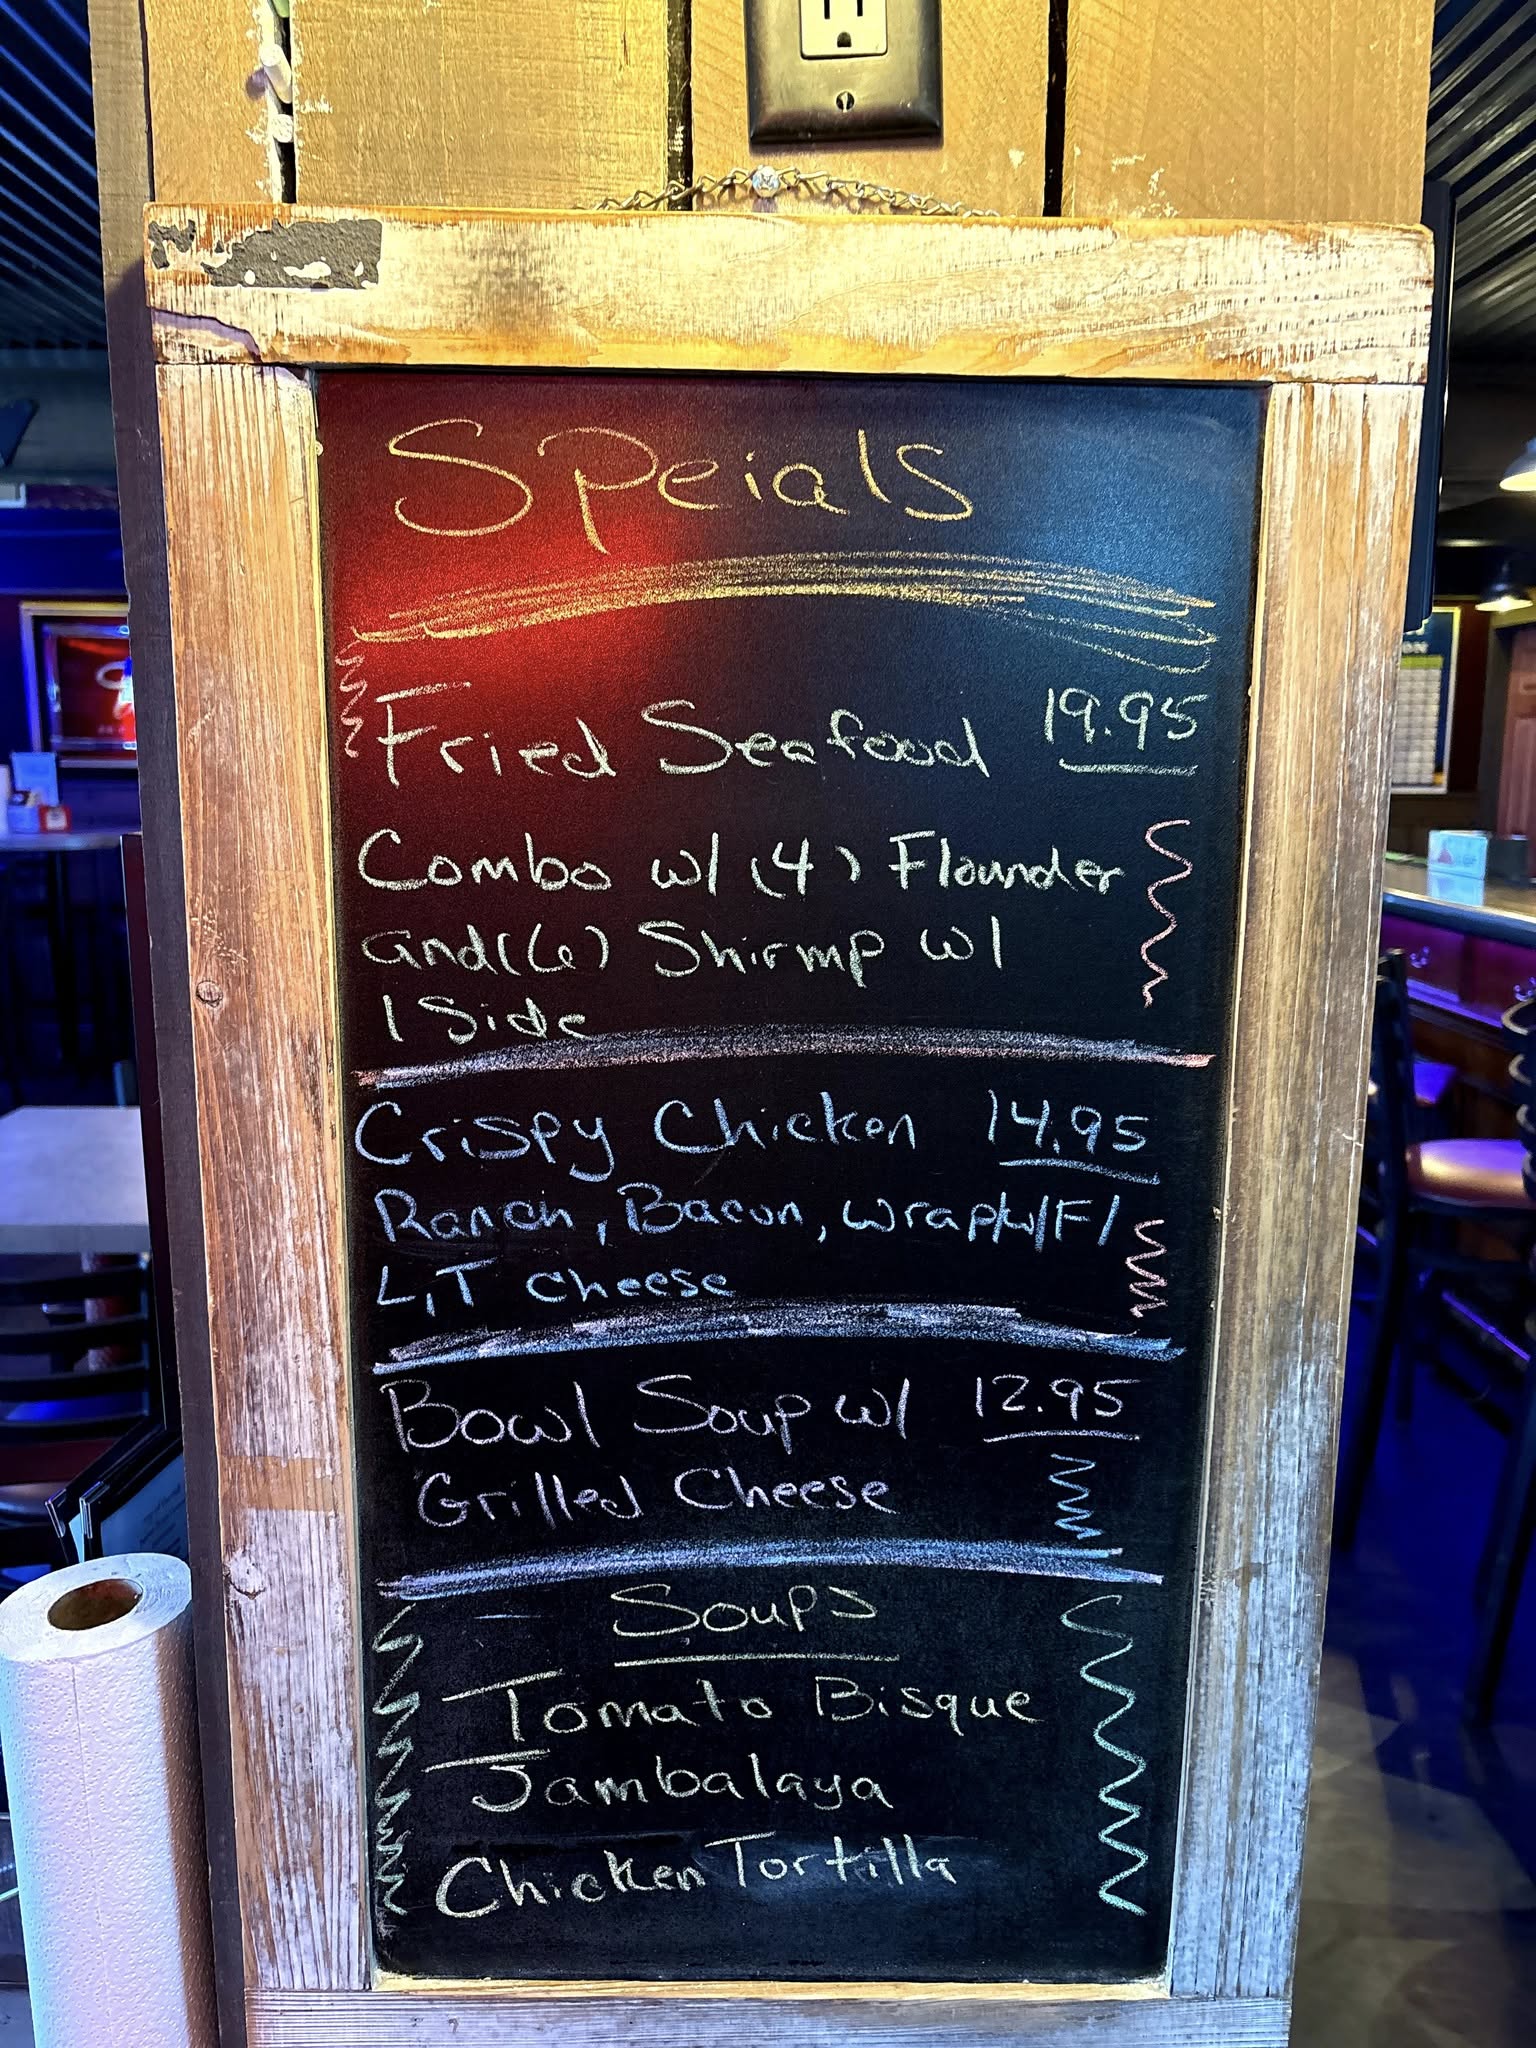 Speials
Fried Seafood 19.95
Combo w/ (4) Flounder
and (6) Shirmp w/
1 Side
Crispy Chicken 14.95
Ranch, Bacon, wrap w/F/
L,T cheese
Bowl Soup w/ 12.95
Grilled Cheese
Soups
Tomato Bisque
Jambalaya
Chicken Tortilla